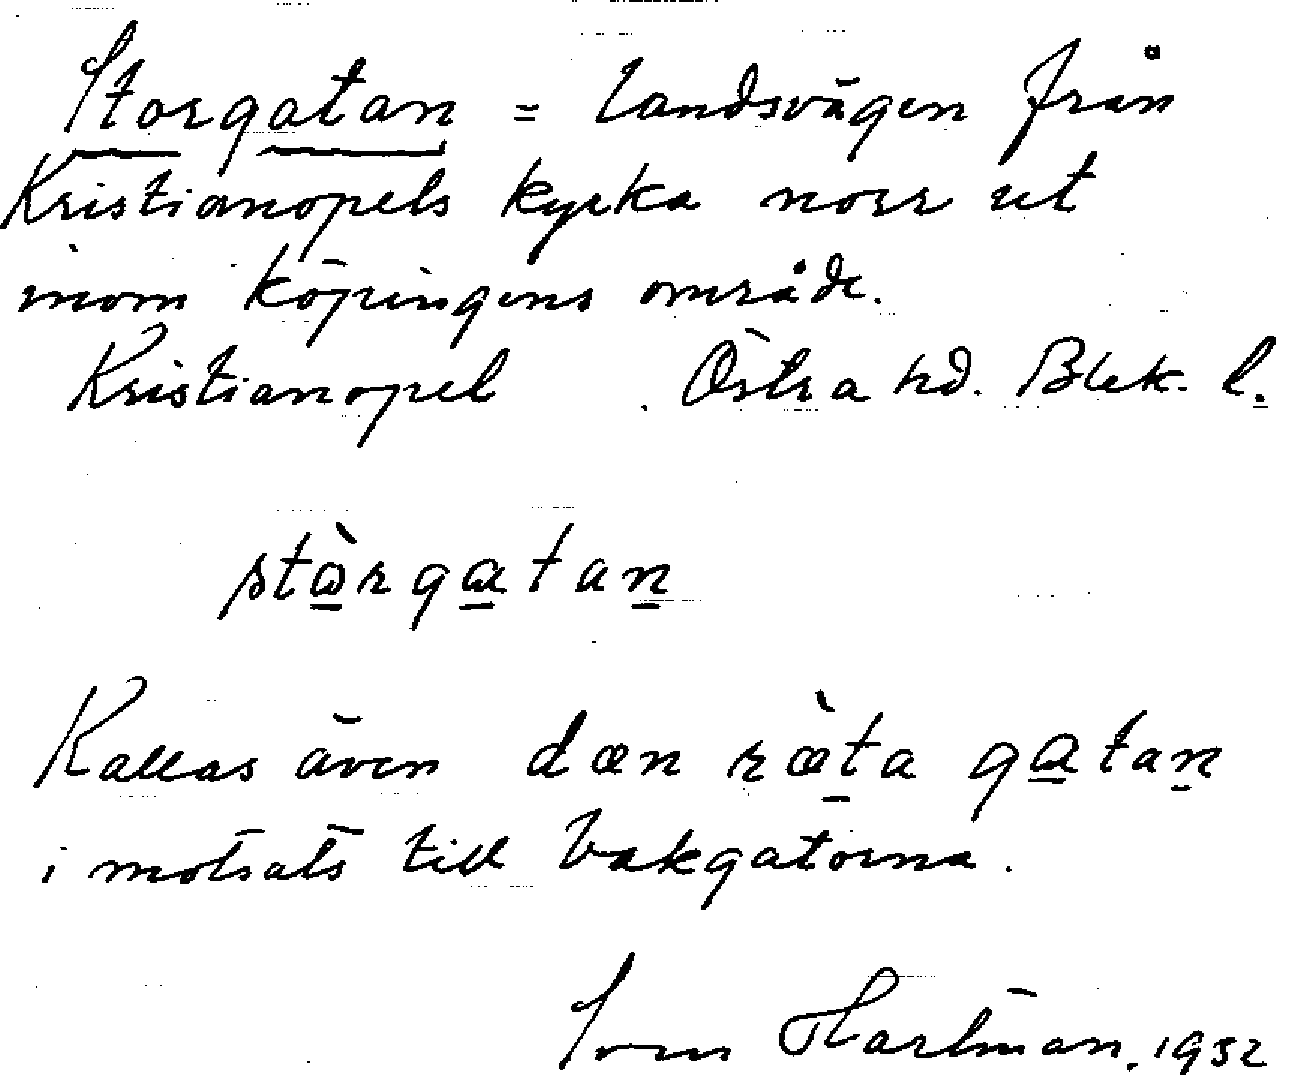 Storgatan = landsvägen från
Kristianopels kyrka norr ut
inom köpingens område.
Kristianopel Östra hd. Blek. l.
stὼrgatan
Kallas även dæn ræ̀ta gatan
i motsats till bakgatorna.
Sven Hartman, 1932